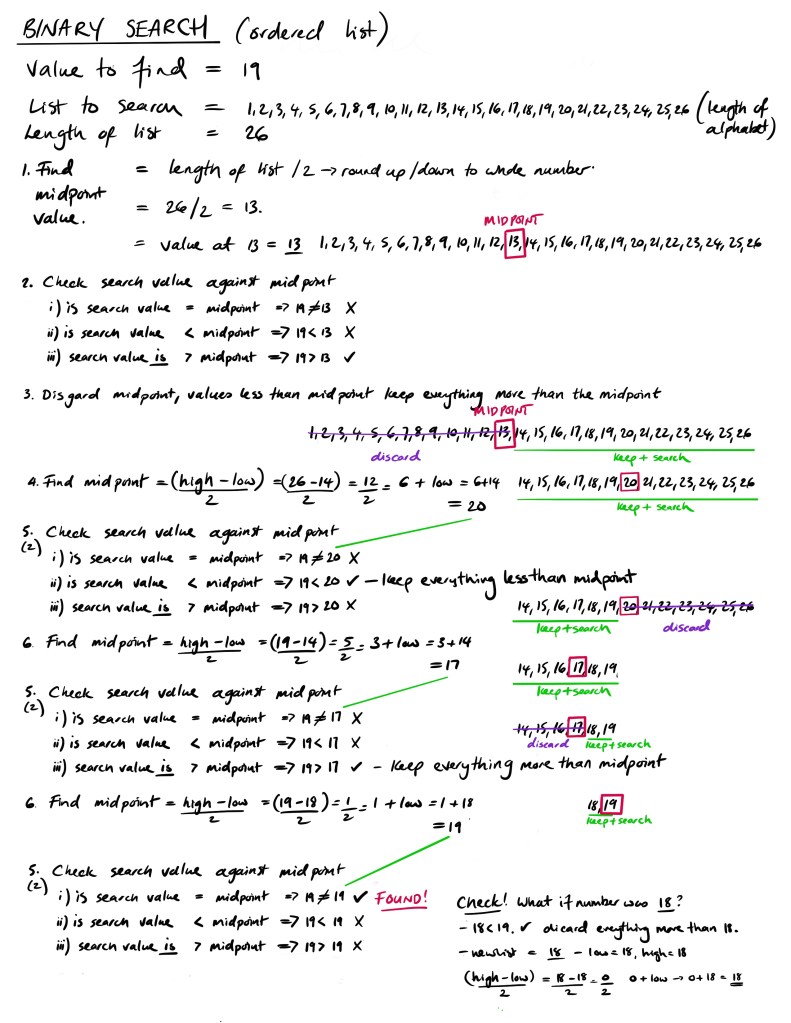 BINARY SEARCH (ordered list)
Value to find = 19
List to search = 1,2,3,4,5,6,7,8,9,10,11,12,13,14,15,16,17,18,19,20,21,22,23,24,25,26 (length of alphabet)
Length of list = 26
1. Find midpoint value. = length of list /2 → round up/down to whole number.
= 26/2 = 13.
MIDPOINT
= value at 13 = 13 1,2,3,4,5,6,7,8,9,10,11,12,13,14,15,16,17,18,19,20,21,22,23,24,25,26
2. Check search value against midpoint
i) is search value = midpoint => 19≠13 X
ii) is search value < midpoint => 19<13 X
iii) search value is > midpoint => 19>13 ✓
3. Disgard midpoint, values less than midpoint keep everything more than the midpoint
MIDPOINT
1,2,3,4,5,6,7,8,9,10,11,12,13,14,15,16,17,18,19,20,21,22,23,24,25,26
discard keep + search
4. Find midpoint = (high - low)/2 = (26-14)/2 = 12/2 = 6 + low = 6+14 14,15,16,17,18,19,20,21,22,23,24,25,26
= 20 keep + search
5. Check search value against midpoint
(2) i) is search value = midpoint => 19≠20 X
ii) is search value < midpoint => 19<20 ✓ - keep everything less than midpoint
iii) search value is > midpoint => 19>20 X 14,15,16,17,18,19,20,21,22,23,24,25,26
keep+search discard
6. Find midpoint = high-low/2 = (19-14)/2 = 5/2 = 3+low = 3+14
= 17 14,15,16,17,18,19
keep+search
5. Check search value against midpoint
(2) i) is search value = midpoint => 19≠17 X
14,15,16,17,18,19
ii) is search value < midpoint => 19<17 X discard keep+search
iii) search value is > midpoint => 19>17 ✓ - keep everything more than midpoint
6. Find midpoint = high-low/2 = (19-18)/2 = 1/2 = 1+low = 1+18 18,19
= 19 keep+search
5. Check search value against midpoint
(2) i) is search value = midpoint => 19≠19 ✓ FOUND!
ii) is search value < midpoint => 19<19 X
iii) search value is > midpoint => 19>19 X
Check! What if number was 18?
- 18<19. ✓ dicard everything more than 18.
- new list = 18 - low=18, high=18
(high-low)/2 = 18-18/2 = 0/2 0+low → 0+18 = 18